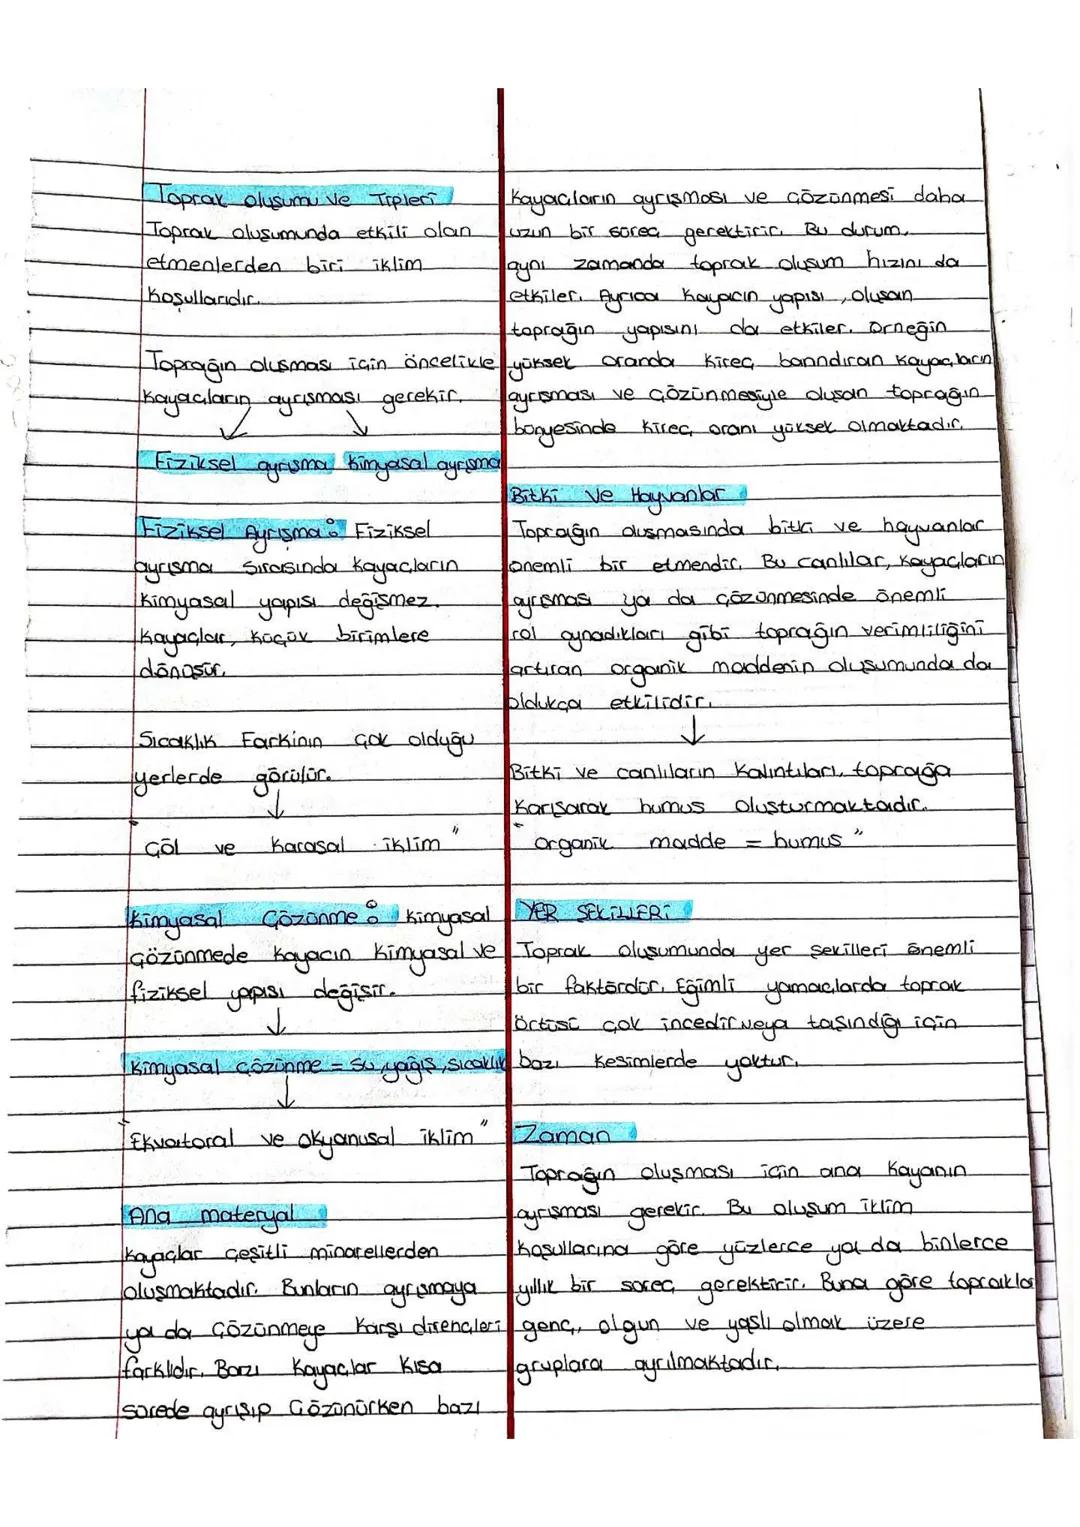 Toprak oluşumu ve Tipleri
Toprak oluşumunda etkili olan
etmenlerden biri iklim
koşullarıdır.
Toprağın oluşması için öncelikle
kayaçların ayrışması gerekir.
Fiziksel ayrışma Kimyasal ayrışma
Fiziksel Ayrışma: Fiziksel
ayrışma sırasında kayaçların
kimyasal yapısı değişmez.
Kayaçlar, küçük birimlere
dönüşür.
Sıcaklık Farkının çok olduğu
yerlerde görülür.
"Çöl ve Karasal iklim"
Kimyasal Çözünme: Kimyasal
Çözünmede kayacın kimyasal ve
fiziksel yapısı değişir.
Kimyasal çözünme = Su, yağış, sıcaklık
"Ekvatoral ve okyanusal iklim"
Ana materyal
Kayaçlar çeşitli minarellerden
oluşmaktadır. Bunların ayrışmaya
ya da Çözünmeye karşı dirençleri
farklıdır. Bazı kayaçlar kısa
sürede ayrışıp Çözünürken bazı
Kayaçların ayrışması ve çözünmesi daha
uzun bir süreç gerektirir. Bu durum,
aynı zamanda toprak oluşum hızını da
etkiler. Ayrıca kayacın yapısı, oluşan
toprağın yapısını da etkiler. Örneğin
yüksek oranda kireç barındıran kayaçların
ayrışması ve Çözünmesiyle oluşan toprağın
bünyesinde kireç oranı yüksek olmaktadır.
Bitki ve Hayvanlar
Toprağın oluşmasında bitki ve hayvanlar
önemli bir etmendir. Bu canlılar, kayaçların
ayrışması ya da çözünmesinde önemli
rol oynadıkları gibi toprağın verimliliğini
artıran organik maddenin oluşumunda da
oldukça etkilidir.
Bitki ve canlıların kalıntıları, toprağa
karışarak humus oluşturmaktadır.
"organik madde = humus"
YER ŞEKİLLERİ
Toprak oluşumunda yer şekilleri önemli
bir faktördür. Eğimli yamaçlarda toprak
örtüsü çok incedir veya taşındığı için
bazı kesimlerde yoktur.
Zaman
Toprağın oluşması için ana kayanın
ayrışması gerekir. Bu oluşum iklim
koşullarına göre yüzlerce ya da binlerce
yıllık bir süreç gerektirir. Buna göre topraklar
genç, olgun ve yaşlı olmak üzere
gruplara ayrılmaktadır.